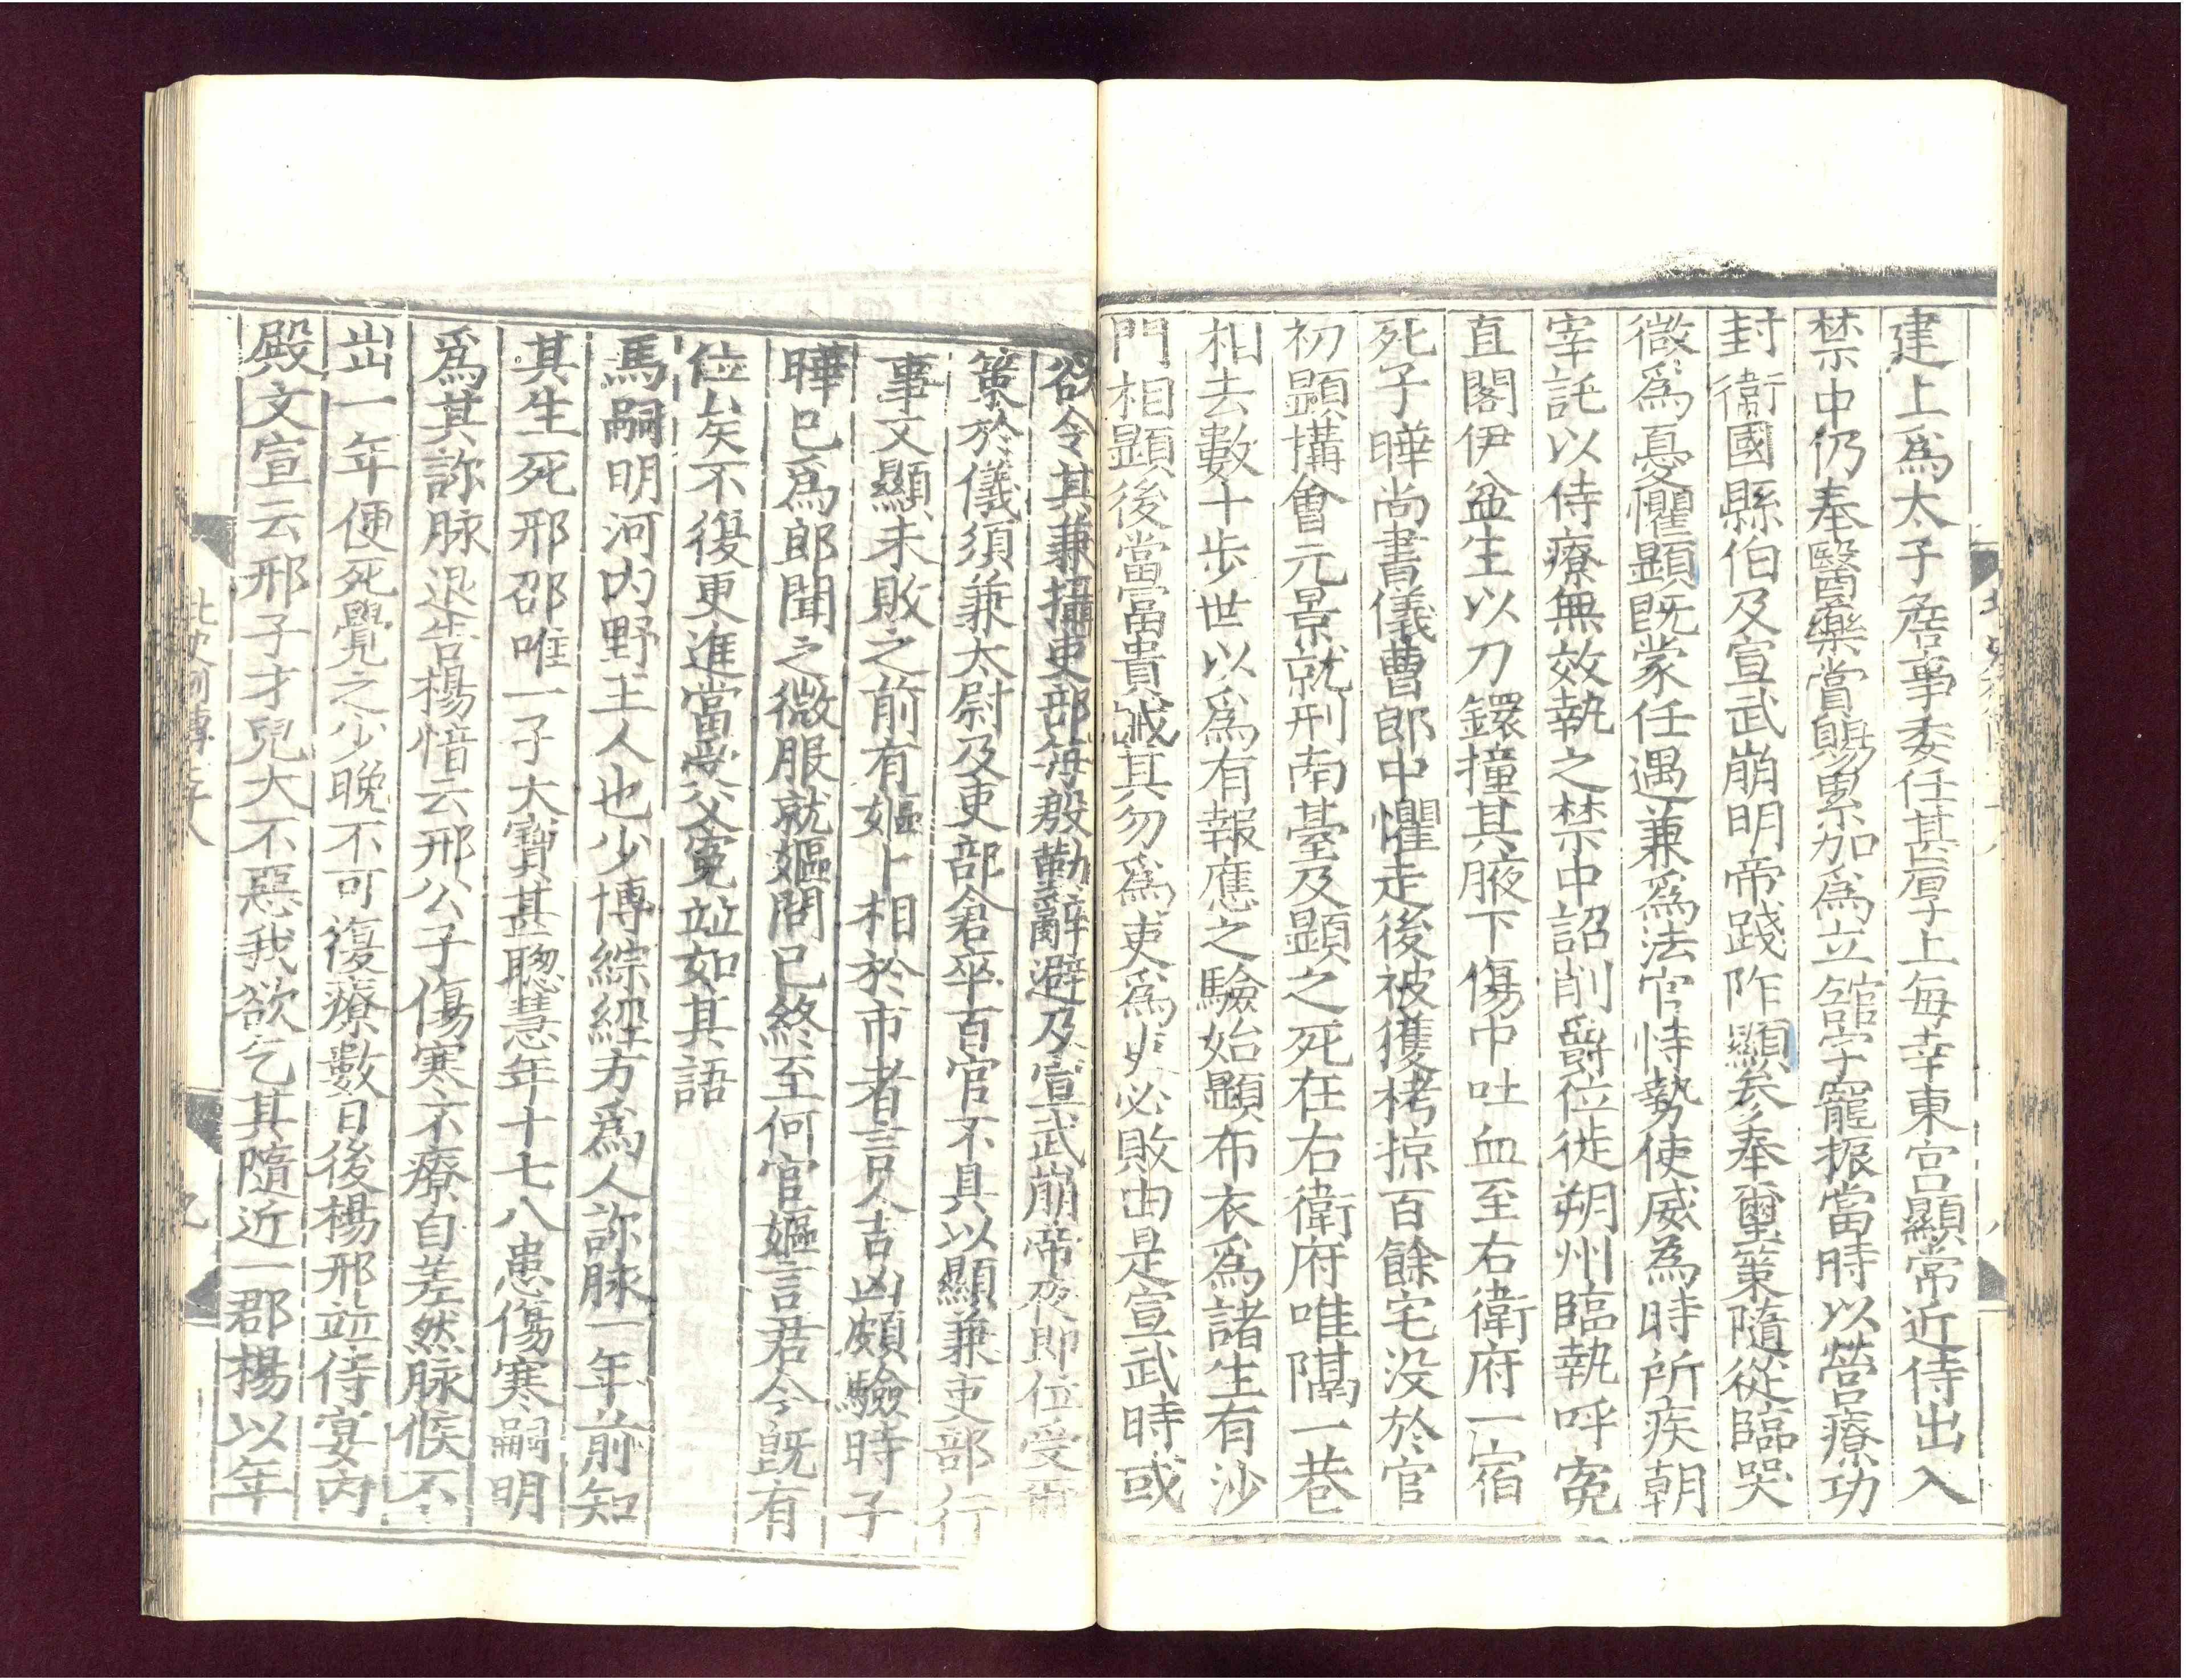 建上爲太子詹事委任甚厚上每幸東宮顯常近侍出入
禁中仍奉醫藥賞賜累加爲立舘宇寵振當時以營療功
封衞國縣伯及宣武崩明帝踐阼顯叅奉璽策隨從臨哭
微爲憂懼顯旣蒙任遇兼爲法官恃勢使威爲時所疾朝
宰託以侍療無效執之禁中詔削爵位徙朔州臨執呼寃
直閤伊盆生以刀鐶撞其腋下傷中吐血至右衛府一宿
死子曄尚書儀曹郎中懼走後被獲栲掠百餘宅没於官
初顯搆會元景就刑南臺及顯之死在右衛府唯隔一巷
相去數十步世以爲有報應之驗始顯布衣爲諸生有沙
門相顯後當富貴誡其勿爲吏爲吏必敗由是宣武時或
欲令其兼攝吏部每殷勤辭避及宣武崩帝夜即位受璽
策於儀須兼太尉及吏部倉卒百官不具以顯兼吏部行
事又顯未敗之前有嫗卜相於市者言人吉凶頗驗時子
曄已爲郎聞之微服就嫗問已終至何官嫗言君今旣有
位矣不復更進當受父寃竝如其語
馬嗣明河内野王人也少博綜經方爲人診脉一年前知
其生死邢邵唯一子大寶甚聰慧年十七八患傷寒嗣明
爲其診脉退告楊愔云邢公子傷寒不療自差然脉候不
出一年便死覺之少晚不可復療數日後楊邢竝侍宴内
殿文宣云邢子才兒大不惡我欲乞其隨近一郡楊以年
北史列傳七十八